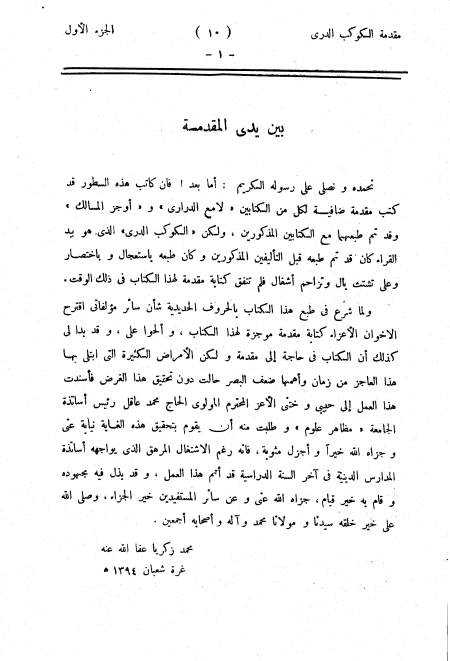 مقدمة الكوكب الدرى ( ١٠ ) الجزء الأول
- ١ -
بين يدى المقدمة
نحمده و نصلى على رسوله الكريم : أما بعد ! فان كاتب هذه السطور قد
كتب مقدمة ضافية لكل من الكتابين « لامع الدرارى » و « أوجز المسالك »
وقد تم طبعهما مع الكتابين المذكورين ، ولكن « الكوكب الدرى» الذى هو بيد
القراء كان قد تم طبعه قبل التأليفين المذكورين و كان طبعه باستعجال و باختصار
وعلى تشتت بال و تزاحم أشغال فلم تتفق كتابة مقدمة لهذا الكتاب فى ذلك الوقت.
ولما شرع فى طبع هذا الكتاب بالحروف الحديدية شأن سائر مؤلفاتى اقترح
الاخوان الأعزاء كتابة مقدمة موجزة لهذا الكتاب ، و ألحوا على ، و قد بدا لى
كذلك أن الكتاب فى حاجة إلى مقدمة و لكن الأمراض الكثيرة التى ابتلى بها
هذا العاجز من زمان وأهمها ضعف البصر حالت دون تحقيق هذا الغرض فأسندت
هذا العمل إلى حبيبى و ختنى الأعز المحترم المولوى الحاج محمد عاقل رئيس أساتذة
الجامعة « مظاهر علوم » و طلبت منه أن يقوم بتحقيق هذه الغاية نيابة عنى
و جزاه الله خيراً و أجزل مثوبة ، فانه رغم الاشتغال المرهق الذى يواجهه أساتذة
المدارس الدينية فى آخر السنة الدراسية قد أتم هذا العمل ، و قد بذل فيه مجهوده
و قام به خير قيام ، جزاه الله عنى و عن سائر المستفيدين خير الجزاء ، وصلى الله
على خير خلقه سيدنا و مولانا محمد و آله و أصحابه أجمعين .
محمد زكريا عفا الله عنه
غرة شعبان ١٣٩٤ ه